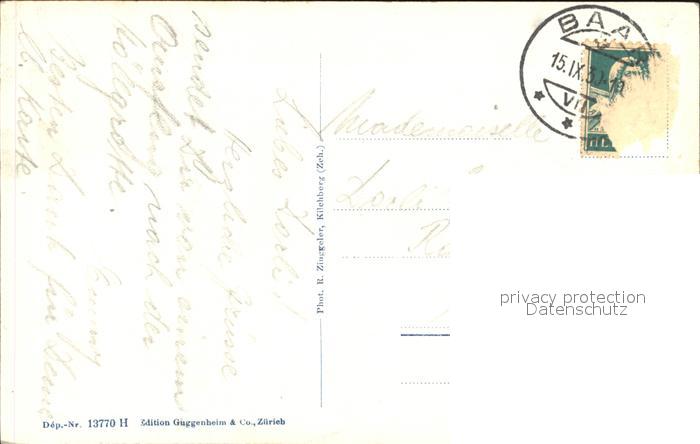 Liebes Zorli!
Herzliche Grüsse
sendet Dir von einem
Ausflug nach der
Höllgrotte.
Emmy
Besten Dank für Deine
lb. Karte.
Phot. R. Zinggeler, Kilchberg (Zch.)
Mademoiselle
Zorli
BAA
15.IX.3
VII
privacy protection
Datenschutz
Dép.-Nr. 13770 H Edition Guggenheim & Co., Zürich